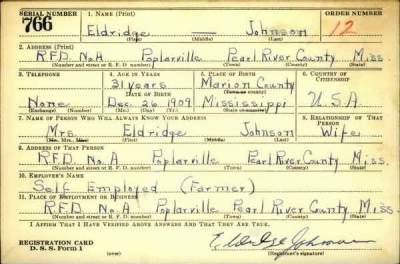 SERIAL NUMBER
1. NAME (Print)
ORDER NUMBER
766
Eldridge — Johnson
12
(First) (Middle) (Last)
2. ADDRESS (Print)
R.F.D. No. A Poplarville Pearl River County Miss.
(Number and street or R. F. D. number) (Town) (County) (State)
3. TELEPHONE
4. AGE IN YEARS
5. PLACE OF BIRTH
6. COUNTRY OF CITIZENSHIP
31 years
Marion County
DATE OF BIRTH
(Town or county)
None
Dec. 26 1909
Mississippi
U.S.A.
(Mo.) (Day) (Yr.)
(State or country)
7. NAME OF PERSON WHO WILL ALWAYS KNOW YOUR ADDRESS
8. RELATIONSHIP OF THAT PERSON
Mrs. Eldridge Johnson Wife
(Mr., Mrs., Miss) (First) (Middle) (Last)
9. ADDRESS OF THAT PERSON
R.F.D. No. A Poplarville Pearl River County Miss.
(Number and street or R. F. D. number) (Town) (County) (State)
10. EMPLOYER'S NAME
Self Employed (Farmer)
11. PLACE OF EMPLOYMENT OR BUSINESS
R.F.D. No. A Poplarville Pearl River County Miss.
(Number and street or R. F. D. number) (Town) (County) (State)
I AFFIRM THAT I HAVE VERIFIED ABOVE ANSWERS AND THAT THEY ARE TRUE.
REGISTRATION CARD
D. S. S. FORM 1
Eldridge Johnson
(Registrant's signature)